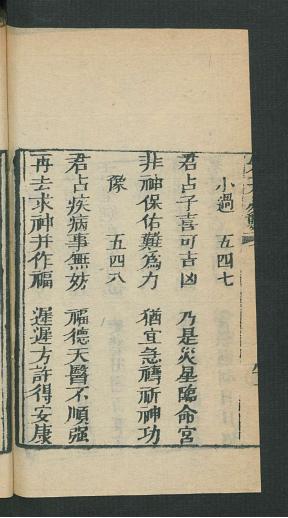 小過　五四七
君占子喜可吉凶　乃是災星臨命宮
非神保佑難為力　猶宜急禱祈神功
豫　五四八
君占疾病事無妨　福德天醫不順強
再去求神并作福　遲遲方許得安康